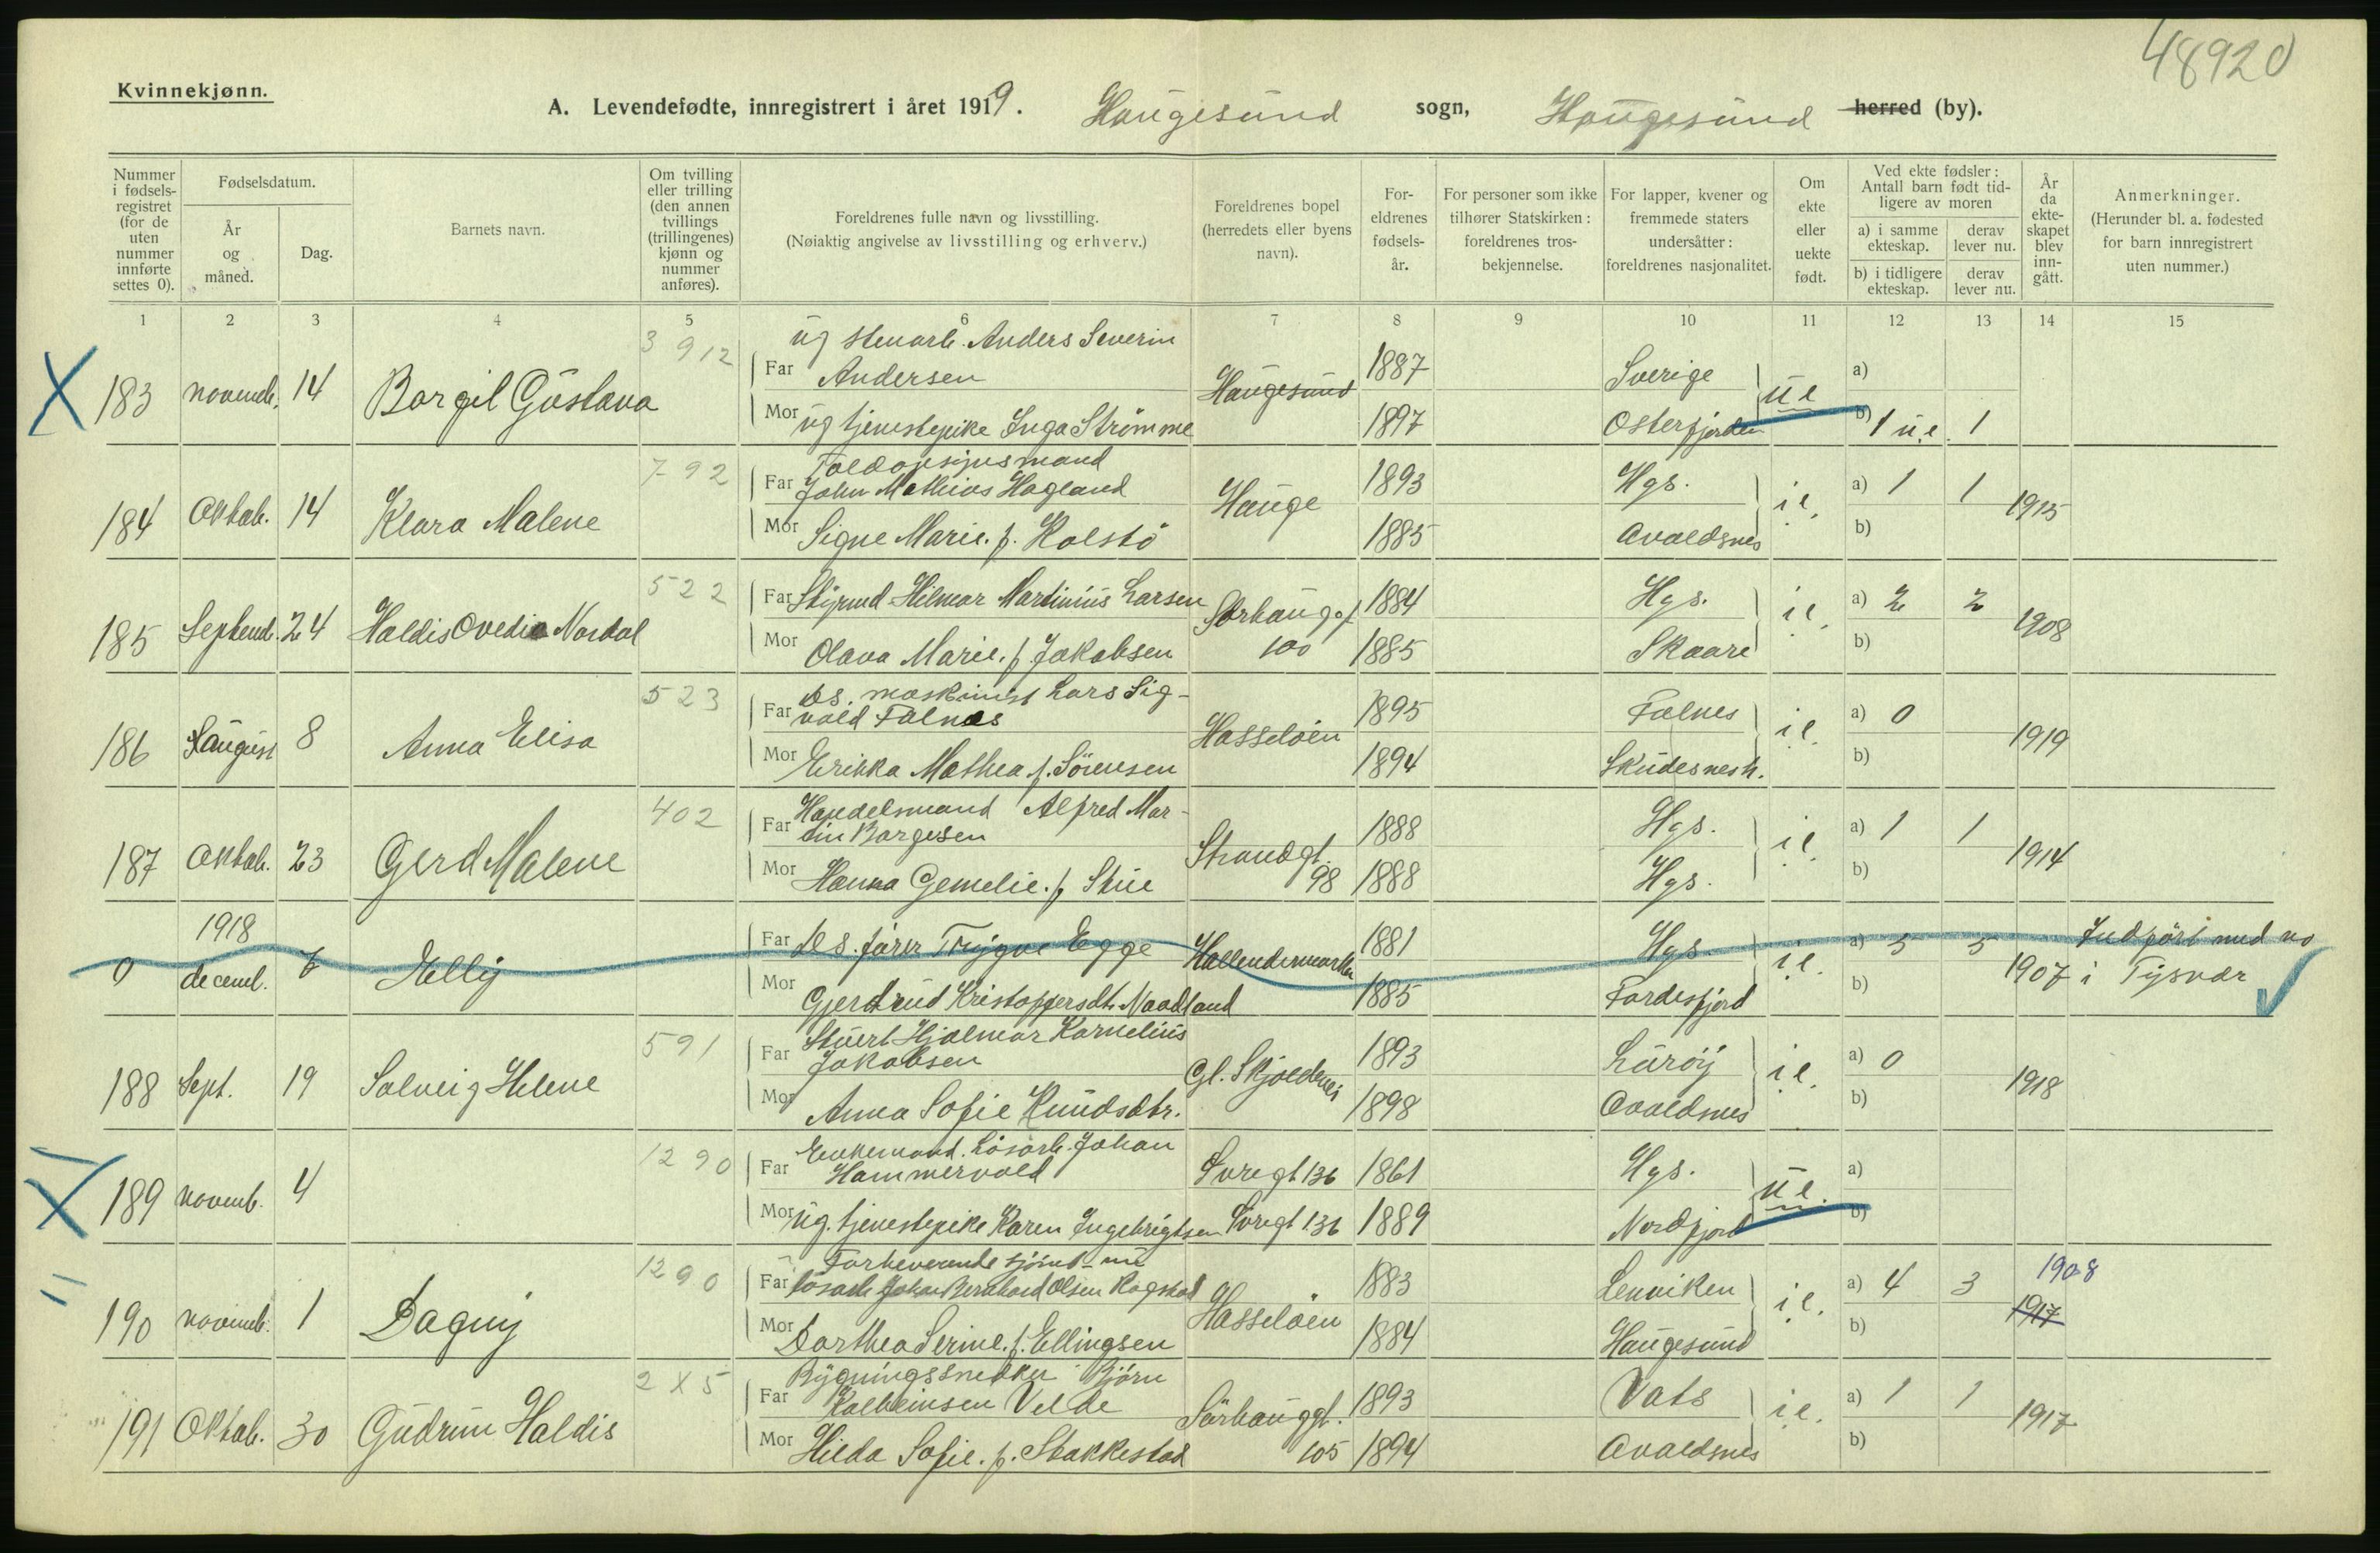 48920
Kvinnekjønn.
A. Levendefødte, innregistrert i året 1919. Haugesund sogn, Haugesund herred (by).
Nummer i fødsels-registret (for de uten nummer innførte settes 0).
Fødselsdatum.
År og måned.
Dag.
Barnets navn.
Om tvilling eller trilling (den annen tvillings (trillingenes) kjønn og nummer anføres).
Foreldrenes fulle navn og livsstilling.
(Nøiaktig angivelse av livsstilling og erhverv.)
Foreldrenes bopel (herredets eller byens navn).
For-eldrenes fødsels-år.
For personer som ikke tilhører Statskirken: foreldrenes tros-bekjennelse.
For lapper, kvener og fremmede staters undersåtter: foreldrenes nasjonalitet.
Om ekte eller uekte født.
Ved ekte fødsler: Antall barn født tid-ligere av moren
a) i samme ekteskap.
derav lever nu.
b) i tidligere ekteskap.
derav lever nu.
År da ekte-skapet blev inn-gått.
Anmerkninger.
(Herunder bl. a. fødested for barn innregistrert uten nummer.)
1 2 3 4 5 6 7 8 9 10 11 12 13 14 15
3912 ug stenarb. Anders Severin
Far Andersen 1887 Sverige a)
183 novemb. 14 Borgil Gustava Haugesund u e
Mor ug tjenestepike Inga Strømme 1897 Osterfjorden b) 1 u.e. 1
792 Toldopsynsmand
Far John Mathias Hagland 1893 Hgs. a) 1 1
184 Oktob. 14 Klara Malene Hauge i e. 1915
Mor Signe Marie. f. Kolstö 1885 Avaldsnes b)
522 Far Styrmd Hilmar Martinius Larsen 1884 Hgs. a) 2 2
185 Septemb. 24 Haldis Ovedia Nordal Sörhaugg. 100 i e. 1908
Mor Olava Marie. f Jakobsen 1885 Skaare b)
523 Ds. maskinist Lars Sig-
Far vald Falnes 1895 Falnes a) 0
186 August 8 Anna Elisa Hasseløen i e. 1919
Mor Erikka Mathea f. Sörensen 1894 Skudesnesh. b)
402 Handelsmand Alfred Mar-
Far tin Børgesen 1888 Hgs. a) 1 1
187 Oktob. 23 Gerd Malene Strandgt. 98 i e. 1914
Mor Hanna Gemelie. f Stue 1888 Hgs. b)
1918
Far Ds. förer Trygve Egge 1881 Hgs. a) 5 5 Indfört med no
0 decemb. 6 Elly i.e. 1907 i Tysvær
Mor Gjertrud Kristoffersdtr. Naadland 1885 Fördesfjord b)
591 Stuert Hjalmar Kornelius
Far Jakobsen 1893 Luröy a) 0
188 Sept. 19 Solveig Helene Gl. Skjoldevei i e. 1918
Mor Anna Sofie Knudsdtr. 1898 Avaldsnes b)
1290 Enkemand. Løsarb. Johan
Far Hammervold Svregt 136 1861 Hgs. a)
189 novemb. 4 u e.
Mor ug. tjenestepike Karen Ingebrigtsen Svregt 136 1889 Nordfjord b)
1290 Forheverende sjömd nu
Far lösarb Johan Bernhard Olsen Rogstad 1883 Lenviken a) 4 3 1908
190 novemb. 1 Dagny Hasseløen i e. 1917
Mor Dorthea Serine. f. Ellingsen 1884 Haugesund b)
2x5 Bygningssnedker Björn
Far Kolbeinsen Velde 1893 Vats a) 1 1
191 Oktob. 30 Gudrun Haldis Sörhauggt. 105 i.e. 1917
Mor Hilda Sofie. f. Stakkestad 1894 Avaldsnes b)